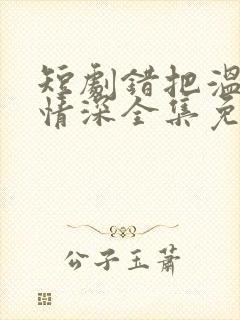 短劇錯把溫
情深全集免
公子玉蕭